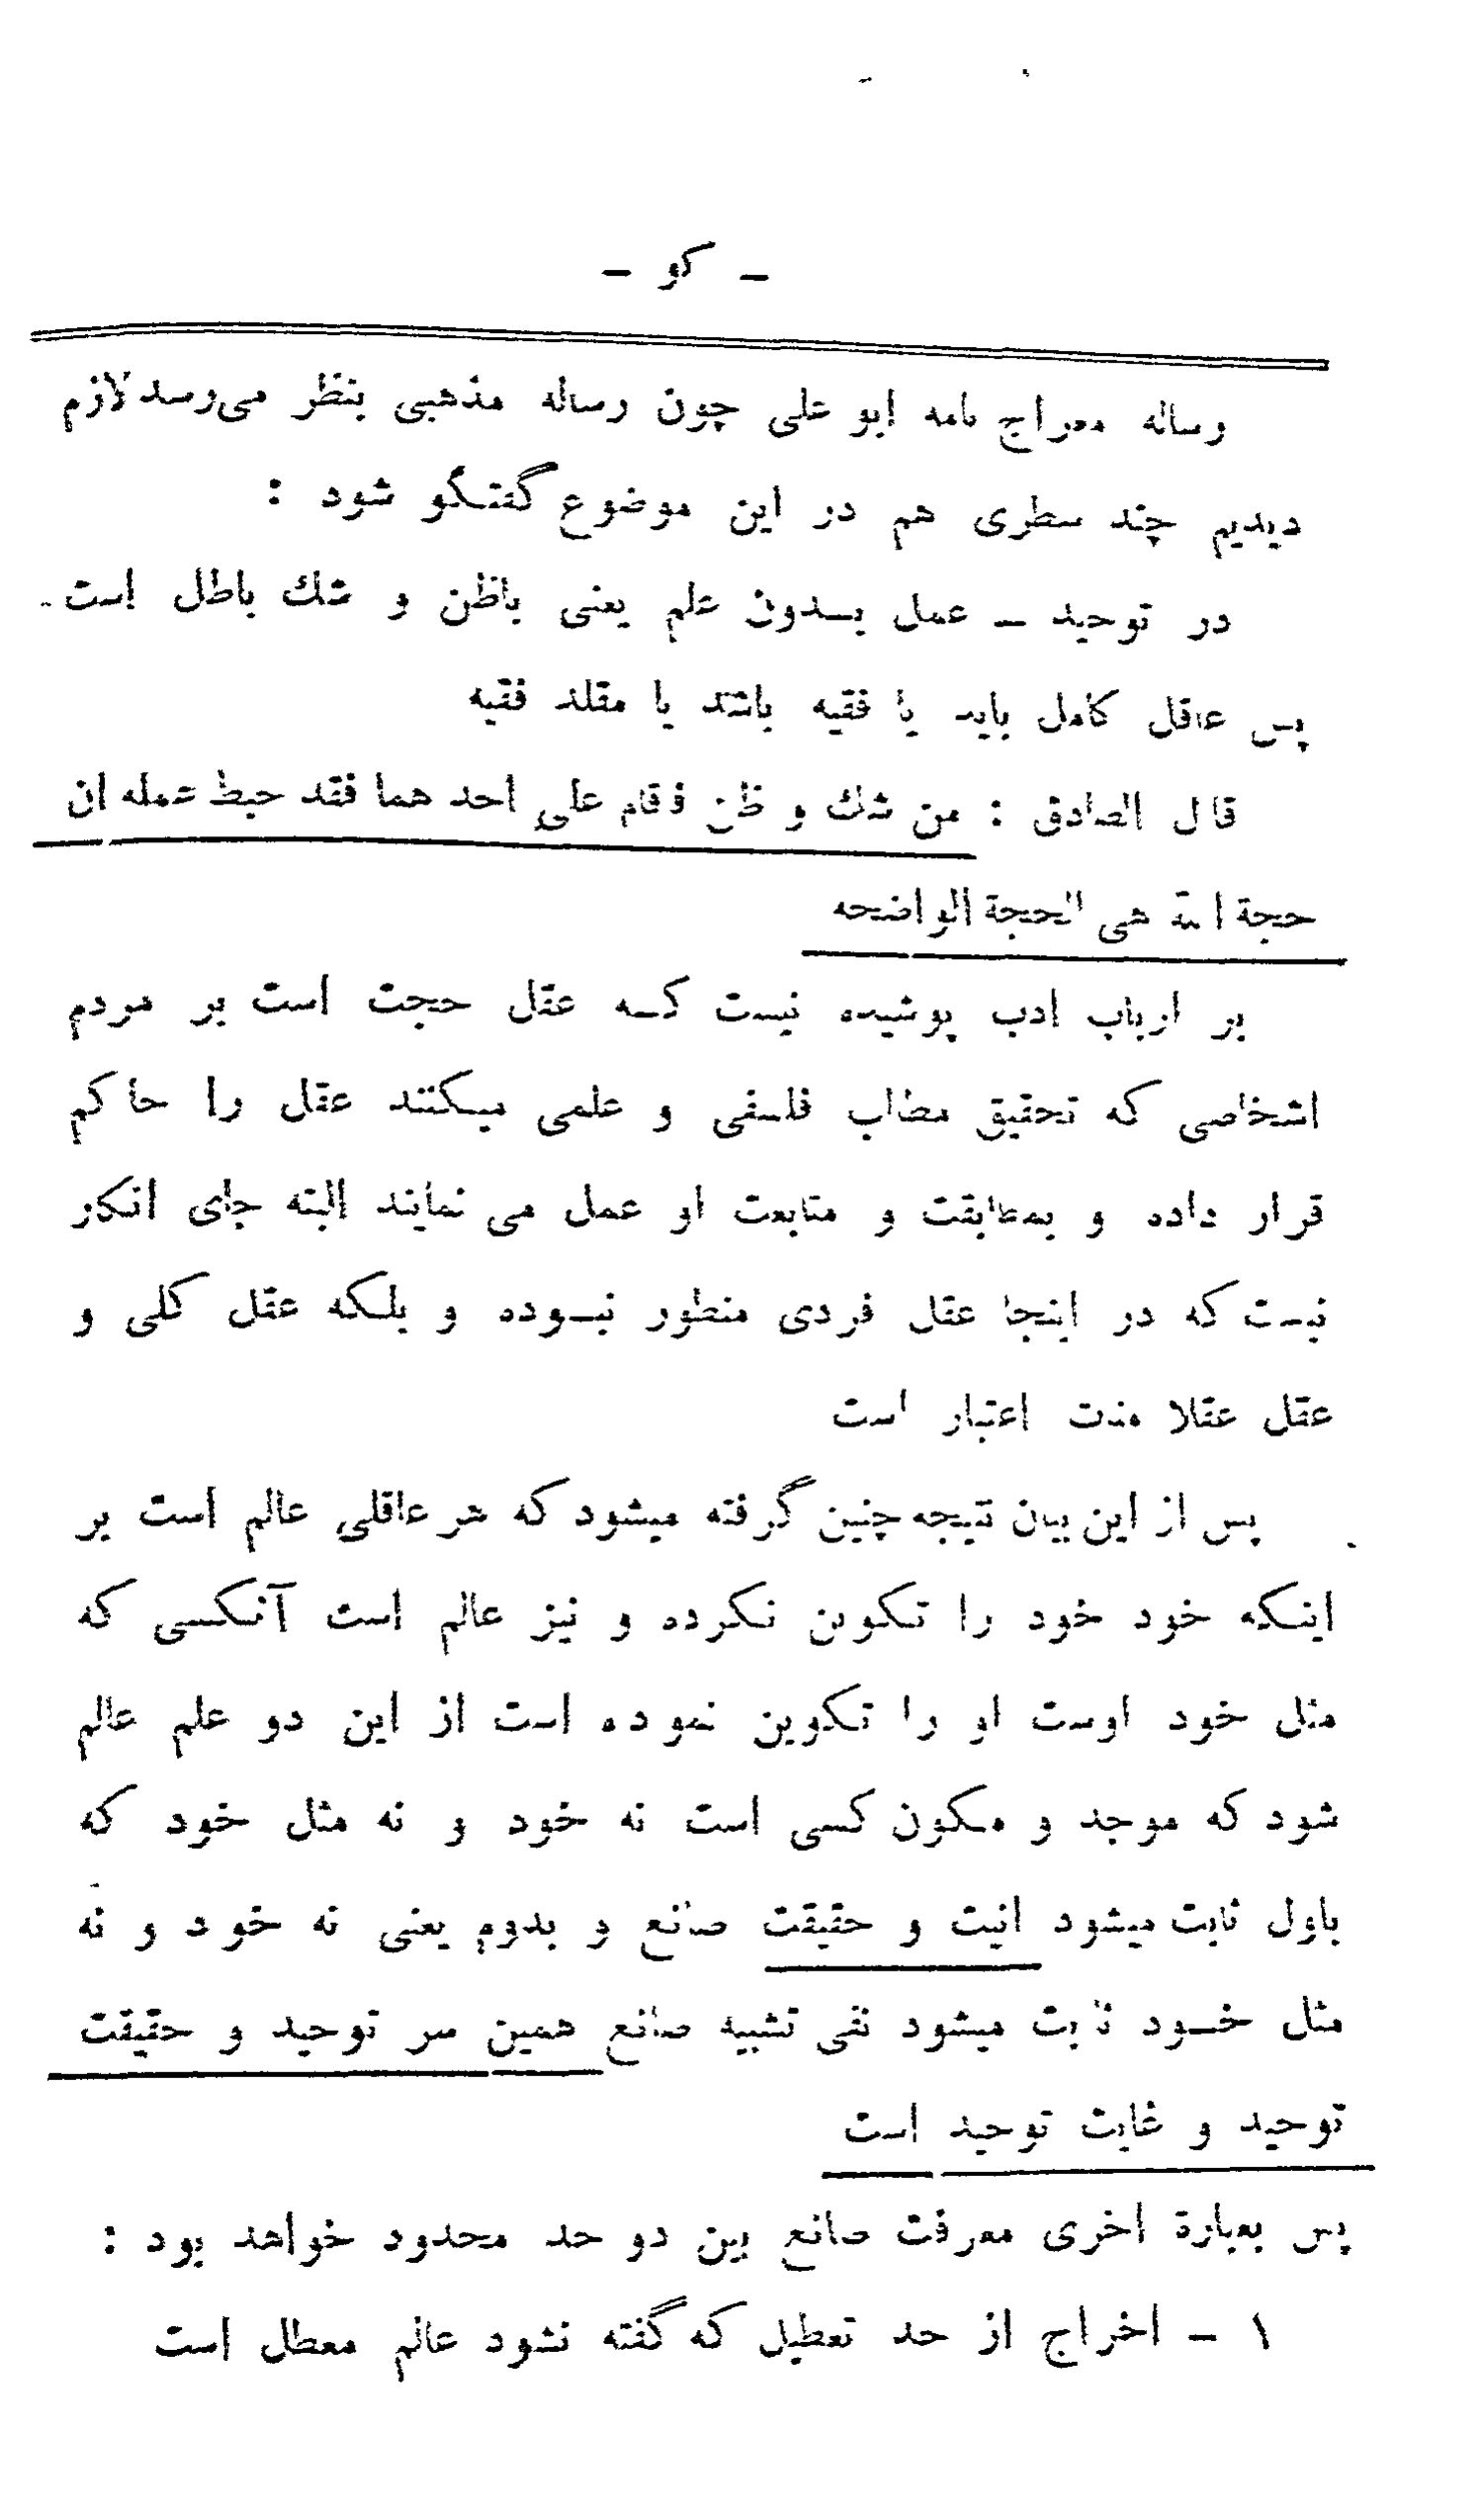 - کو -
رساله معراج نامه ابو علی چون رساله مذهبی بنظر می‌رسد لازم
دیدیم چند سطری هم در این موضوع گفتگو شود :
در توحید – عمل بدون علم یعنی باظن و شك باطل است
پس عاقل کامل باید یا فقیه باشد یا مقلد فقیه
قال الصادق : من شك و ظن فقام علی احد هما فقد حبط عمله ان
حجة الله هی الحجة الواضحه
بر ارباب ادب پوشیده نیست که عقل حجت است بر مردم
اشخاصی که تحقیق مطالب فلسفی و علمی میکنند عقل را حاکم
قرار داده و بمطابقت و متابعت او عمل می نمایند البته جای انکار
نیست که در اینجا عقل فردی منظور نبوده و بلکه عقل کلی و
عقل عقلا مدت اعتبار است
پس از این بیان نتیجه چنین گرفته میشود که هر عاقلی عالم است بر
اینکه خود خود را تکوین نکرده و نیز عالم است آنکسی که
مثل خود اوست او را تکوین نموده است از این دو علم عالم
شود که موجد و مکون کسی است نه خود و نه مثل خود که
باول ثابت میشود انیت و حقیقت صانع و بدوم یعنی نه خود و نه
مثل خود ثابت میشود نفی تشبیه صانع همین سر توحید و حقیقت
توحید و غایت توحید است
پس بعبارة اخری معرفت صانع بین دو حد محدود خواهد بود :
۱ – اخراج از حد تعطیل که گفته نشود عالم معطل است